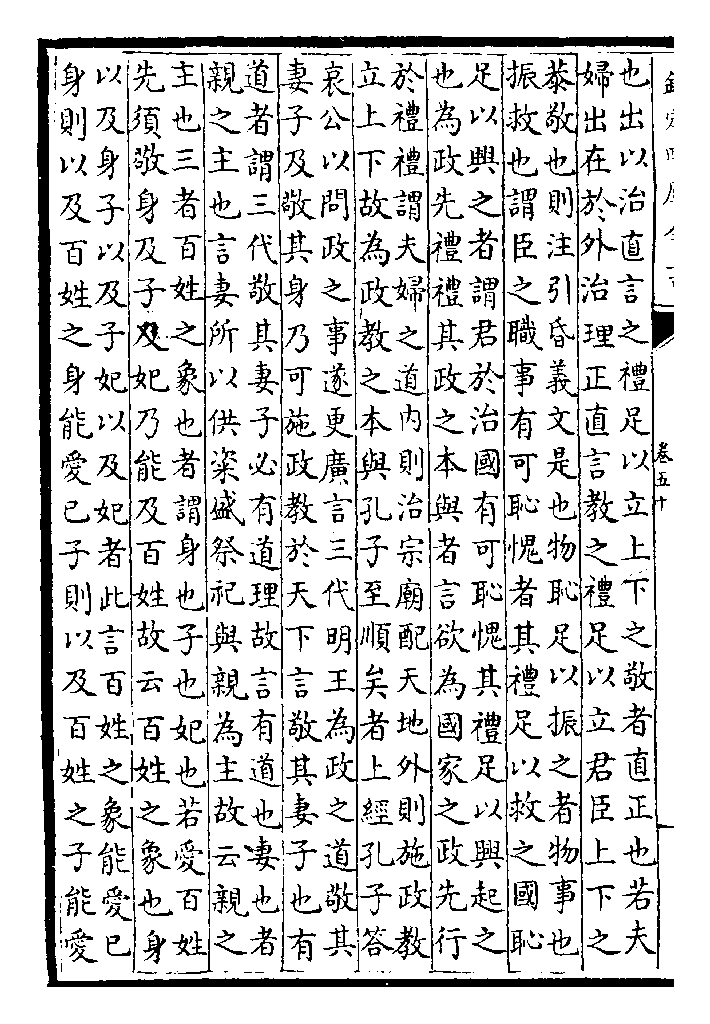 欽定四庫全書
卷五十
也出以治直言之禮足以立上下之敬者直正也若夫
婦出在於外治理正直言教之禮足以立君臣上下之
恭敬也則注引昏義文是也物恥足以振之者物事也
振救也謂臣之職事有可恥愧者其禮足以救之國恥
足以興之者謂君於治國有可恥愧其禮足以興起之
也為政先禮禮其政之本與者言欲為國家之政先行
於禮禮謂夫婦之道内則治宗廟配天地外則施政教
立上下故為政教之本與孔子至順矣者上經孔子答
哀公以問政之事遂更廣言三代明王為政之道敬其
妻子及敬其身乃可施政教於天下言敬其妻子也有
道者謂三代敬其妻子必有道理故言有道也凄也者
親之主也言妻所以供粢盛祭祀與親為主故云親之
主也三者百姓之象也者謂身也子也妃也若愛百姓
先須敬身及子及妃乃能及百姓故云百姓之象也身
以及身子以及子妃以及妃者此言百姓之象能愛已
身則以及百姓之身能愛已子則以及百姓之子能愛